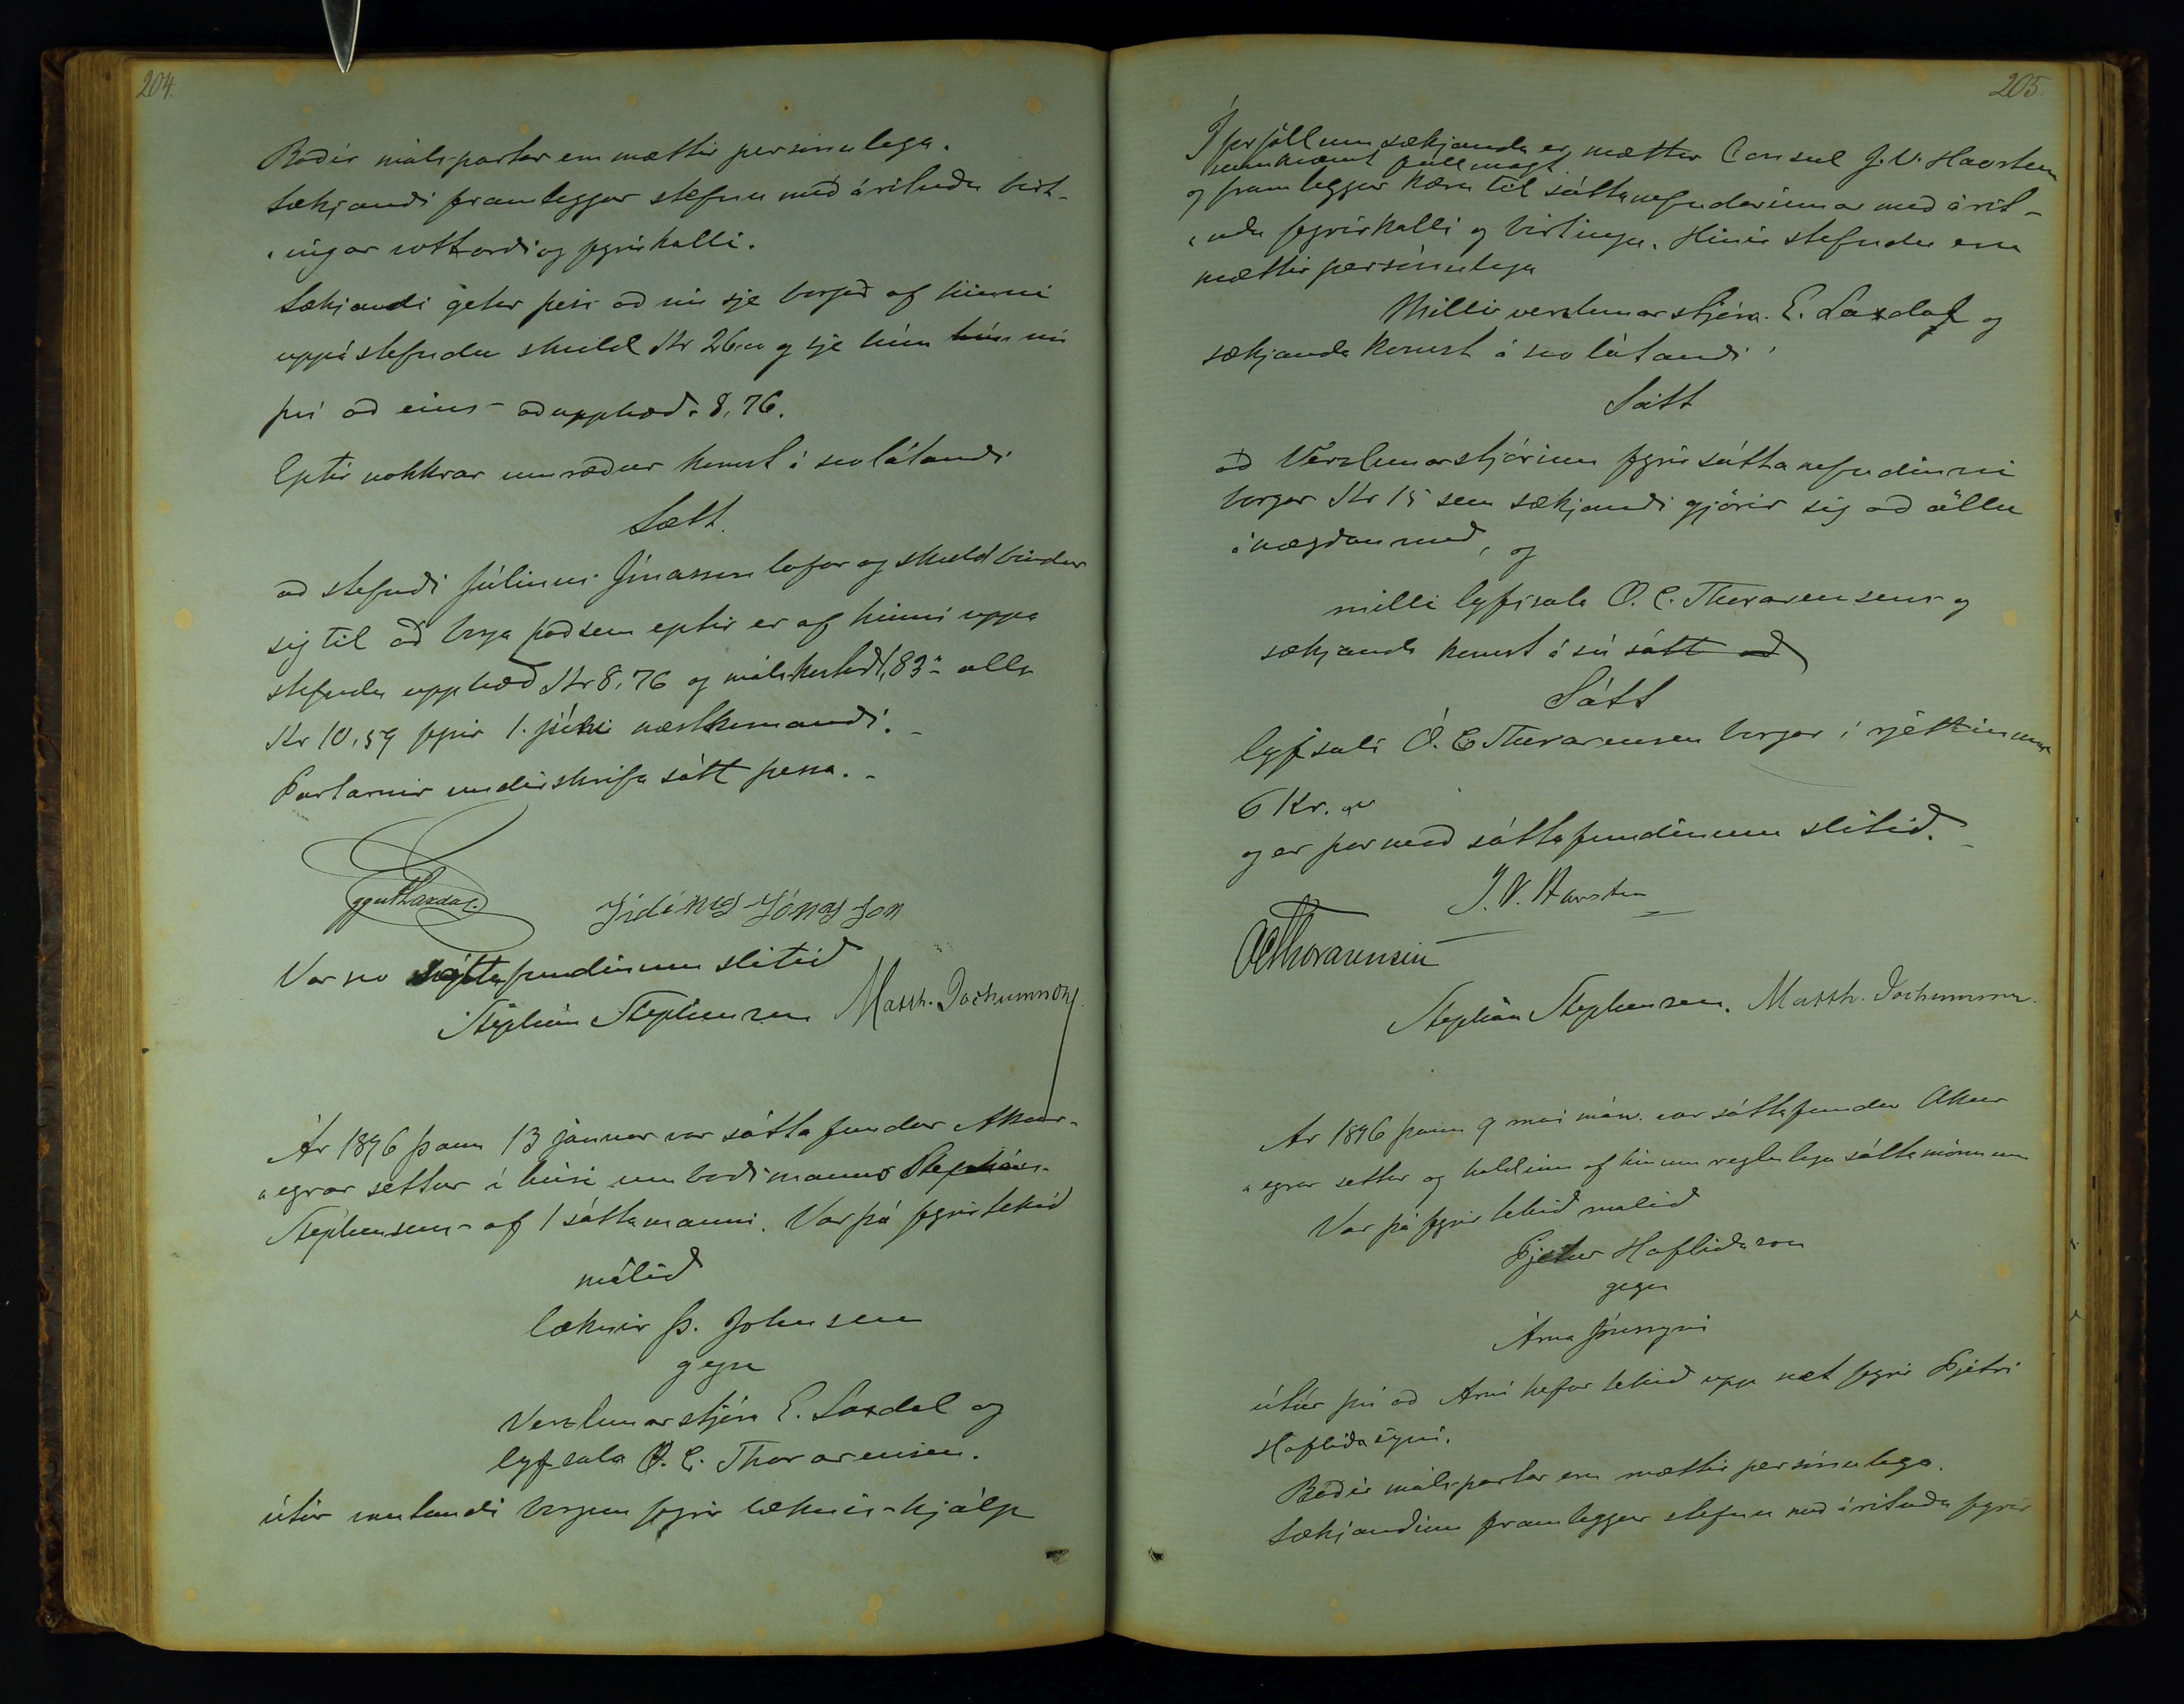 204.
Báðir málspartar eru mættir persónulega.
Sækjandi framleggur stefnu með árituðu birt-
ingar vottorði og fyrirkalli.
Sækjandi getur þess að nú sje borgað af hinni
uppástefndu skuld Kr 26.00 og sje hún hún nú
því að eins að upphæð 8,76.
Eptir nokkrar umræður komst á svolátandi
Sætt.
að stefndi Júlíus Jónasson lofar og skuldbindur
sig til að borga það sem eptir er af hinni uppá
stefndu upphæð Kr 8,76 og málskostnað 1,83 alls
Kr 10,59 fyrir 1. júní næstkomandi.
Partarnir undirskrifa sátt þessa.
Eggert Laxdal.
Júlíus Jónasson
Var svo sáttafundinum slitið
Stephán Stephensen Matth. Jochumsson.
Ár 1896 þann 13 janúar var sáttafundur Akur-
eyrar settur í húsi umboðsmanns Stepháns
Stephensens af 1 sáttamanni. Var þá fyrirtekið
málið
læknir Þ. Johnsen
gegn
Verzlunarstjóra E. Laxdal og
lyfsala O. C. Thorarensen.
útúr vantandi borgun fyrir læknis-hjálp
205.
Í forföllum sækjanda er mættur Consul J. V. Havsteen
samkvæmt fullmagt
og framleggur kæru til sáttanefndarinnar með árit-
uðu fyrirkalli og birtingu. Hinir stefndu eru
mættir persónulega
Milli verzlunarstjóra E. Laxdal og
sækjanda komst á svolátandi
Sátt
að Verzlunarstjórinn fyrir sáttanefndinni
borgar Kr 15 sem sækjandi gjörir sig að öllu
ánægðan með, og
milli lyfsala O. C. Thorarensens og
sækjanda komst á sú sátt að
Sátt
lyfsali O. C Thorarensen borgar í rjettinum
6 Kr.
og er þar með sáttafundinum slitið.
J. V. Havsteen
OCThorarensen
Stephán Stephensen. Matth. Jochumsson.
Ár 1896 þann 9 maí mán. var sáttafundur Akur
eyrar settur og haldinn af hinum reglulegu sáttamönnum
Var þá fyrir tekið malið
Pjetur Hafliðason
gegn
Árna Jónssyni
útúr því að Árni hefur tekið upp net fyrir Pjetri
Hafliðasyni.
Báðir málspartar eru mættir persónulega.
Sækjandinn framleggur stefnu með árituðu fyrir